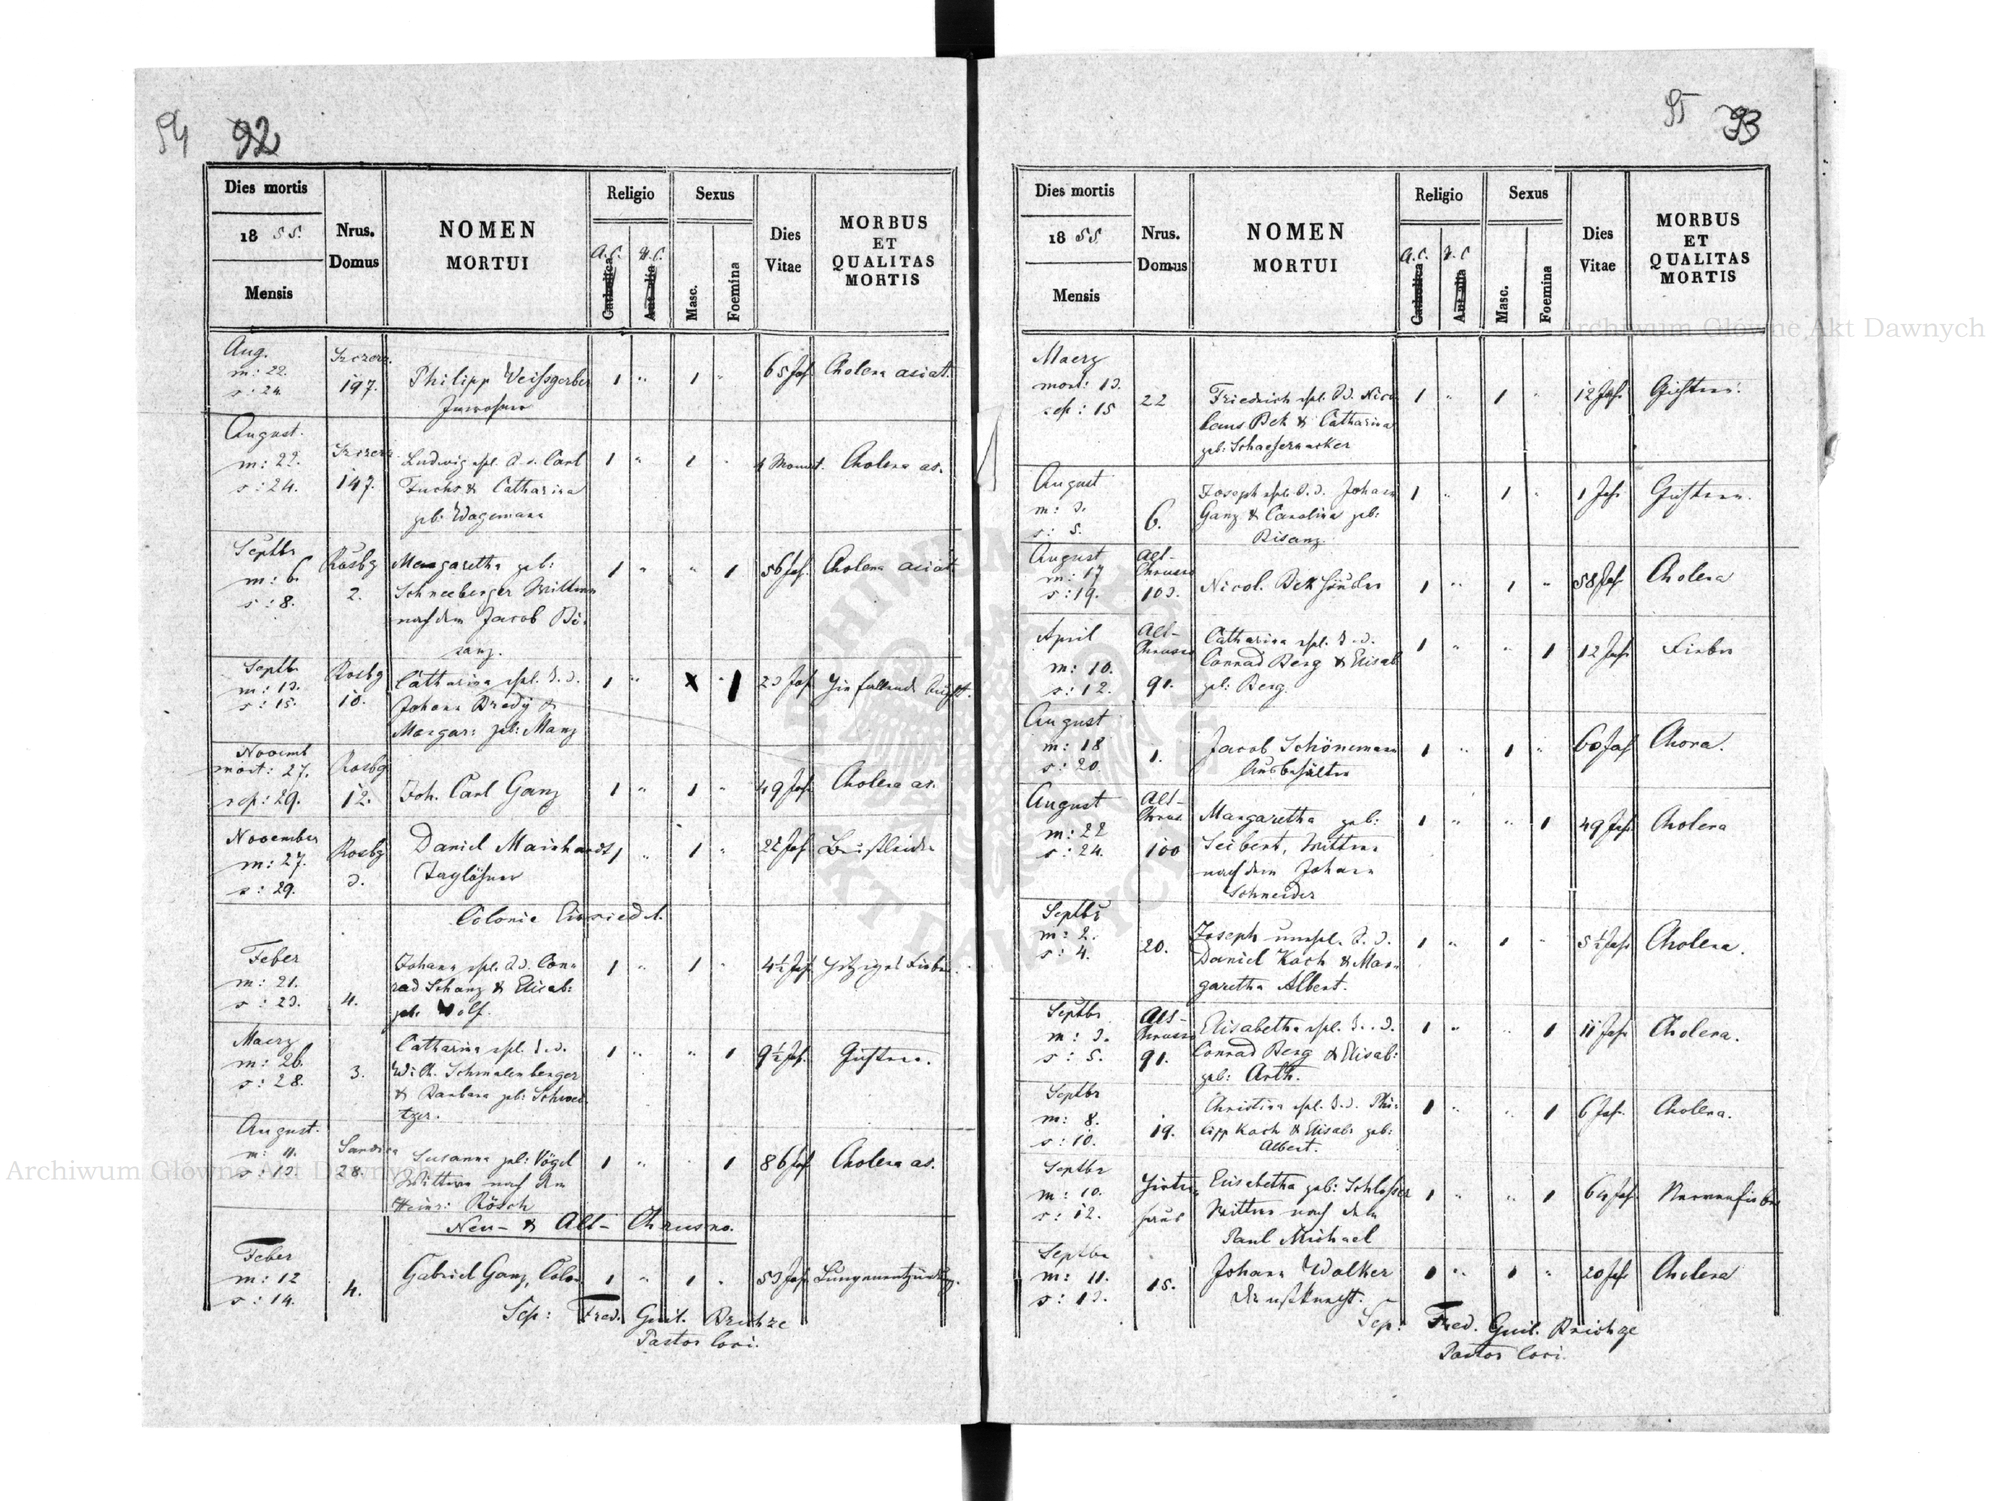 94 92
Dies mortis
18 55.
Mensis
Nrus.
Domus
NOMEN
MORTUI
Religio
A. C.
Catholica
H. C.
Aut alia
Sexus
Masc.
Foemina
Dies
Vitae
MORBUS
ET
QUALITAS
MORTIS
Aug.
m: 22.
s: 24.
197.
Philipp Weissgerber
Inwohner
1 " 1 "
65 Jah.
Cholera asiat.
August.
m: 22.
s: 24.
147.
Ludwig ehl. S. d. Carl
Fuchs & Catharina
geb: Wagemann
1 " 1 "
4 Monat.
Cholera as.
Septbr
m: 6.
s: 8.
Rosbg
2.
Margaretha geb:
Schneeberger Wittwe
nach dem Jacob Bi-
sanz.
1 " " 1
56 Jah.
Cholera asiat.
Septb.
m: 13.
s: 15.
Rosbg
10.
Catharina ehl. T. d.
Johann Bredy &
Margar: geb: Manz
1 " x " 1
23 Jah.
Hinfallende
Novemb
mort: 27.
sep: 29.
Rosbg
12.
Joh. Carl Ganz
1 " 1 "
49 Jah.
Cholera as.
November
m: 27.
s: 29.
Rosbg
3.
Daniel Mainhardt
Taglöhner
1 " 1 "
22 Jah.
Colonie Einsiedel.
Feber
m: 21.
s: 23.
4.
Johann ehl. S. d. Con-
rad Schanz & Elisab:
geb. Wolf.
1 " 1 "
4½ Jah.
Hitziges Fieber.
Maerz
m: 26.
s: 28.
3.
Catharina ehl. T. d.
Wilh. Schmalenberger
& Barbara geb: Schwei-
tzer.
1 " " 1
9½ Jah.
August.
m: 11.
s: 13.
28.
Susanna geb: Vögel
Wittwe nach dem
Heinr: Rösch
1 " " 1
86 Jah.
Cholera as.
Neu- & Alt- Chrusno.
Feber
m: 12
s: 14.
4.
Gabriel Ganz, Colon
1 " 1 "
53 Jah.
Lungenentzündung.
Sep: Fred. Guil. Brichze
Pastor loci.
95 93
Dies mortis
18 55.
Mensis
Nrus.
Domus
NOMEN
MORTUI
Religio
A. C.
Catholica
H. C.
Aut alia
Sexus
Masc.
Foemina
Dies
Vitae
MORBUS
ET
QUALITAS
MORTIS
Maerz
mort: 13.
sep: 15
22
Friedrich ehl. S. d. Nico-
laus Bek & Catharina
geb: Schaefernacker
1 " 1 "
12 Jah.
August
m: 3.
s: 5.
6.
Joseph ehl. S. d. Johann
Ganz & Carolina geb:
Bisanz.
1 " 1 "
1 Jah.
August
m: 17
s: 19.
Alt-
Chrusno
103.
Nicol. Bek
1 " 1 "
58 Jah.
Cholera
April
m: 10.
s: 12.
Alt-
Chrusno
91.
Catharina ehl. T. d.
Conrad Berg & Elisab
geb: Berg.
1 " " 1
12 Jah.
Fieber
August
m: 18
s: 20.
1.
Jacob Schönemann
Ausbehälter
1 " 1 "
60 Jah.
Chora.
August
m: 22
s: 24.
Alt-
Chrus.
100
Margaretha geb:
Seibert, Wittwe
nach dem Johann
Schneider
1 " " 1
49 Jah.
Cholera
Septbr
m: 2.
s: 4.
20.
Joseph unehl. S. d.
Daniel Koch & Mar-
garetha Albert.
1 " 1 "
5½ Jah.
Cholera.
Septbr
m: 3.
s: 5.
Alt-
Chrusno
91.
Elisabetha ehl. T. d.
Conrad Berg & Elisab:
geb: Arth.
1 " " 1
11 Jah.
Cholera.
Septbr
m: 8.
s: 10.
19.
Christina ehl. T. d. Phi-
lipp Koch & Elisab: geb:
Albert.
1 " " 1
6 Jah.
Cholera.
Septbr
m: 10.
s: 12.
Hirten
haus
Elisabetha geb: Schlosser
Wittwe nach dem
Paul Michael
1 " " 1
64 Jah.
Nervenfieber
Septbr
m: 11.
s: 13.
15.
Johann Walker
Dienstknecht.
1 " 1 "
20 Jah.
Cholera
Sep: Fred. Guil. Brichze
Pastor loci.
Archiwum Główne Akt Dawnych
Archiwum Główne Akt Dawnych
ARCHIWUM GŁÓWNE
AKT DAWNYCH